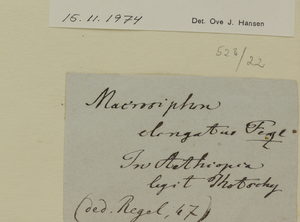 15.11.1974 Det. Ove J. Hansen
528/22
Macrosiphon
elongatus
In Aethiopia
legit Kotschy
(ded. Regel, 47)